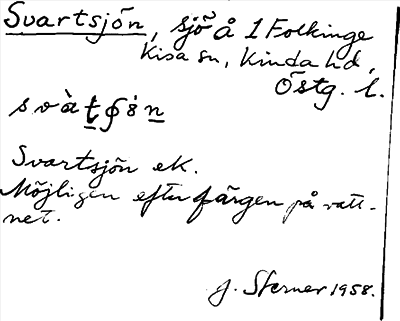 Svartsjön, sjö å 1 Folkinge
Kisa sn, Kinda hd,
Östg. l.
Svartsjön ek.
Möjligen efter färgen på vatt-
net.
J. Sterner 1958.